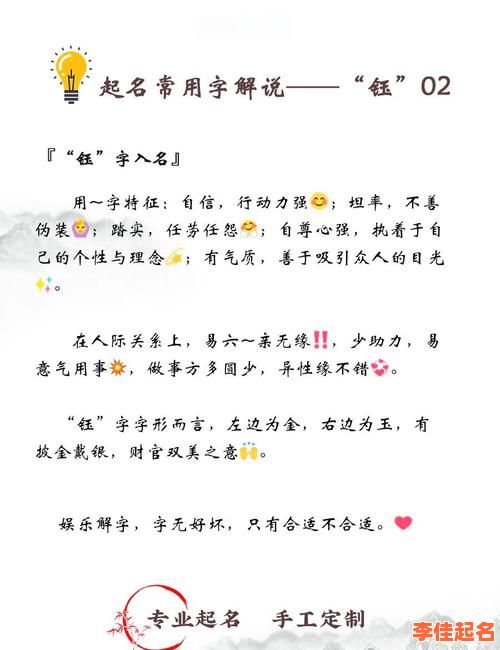 起名常用字解说——“钰”02
『“钰”字入名』
用~字特征：自信，行动力强😊；坦率，不善
伪装🙆；踏实，任劳任怨🤗；自尊心强，执着于自
己的个性与理念💫；有气质，善于吸引众人的目光
✨。
在人际关系上，易六~亲无缘‼️，少助力，易
意气用事💥，做事方多圆少，异性缘不错💞。
“钰”字字形而言，左边为金，右边为玉，有
披金戴银，财官双美之意🙌。
娱乐解字，字无好坏，只有合适不合适。❤️
专业起名 手工定制
李佳起名